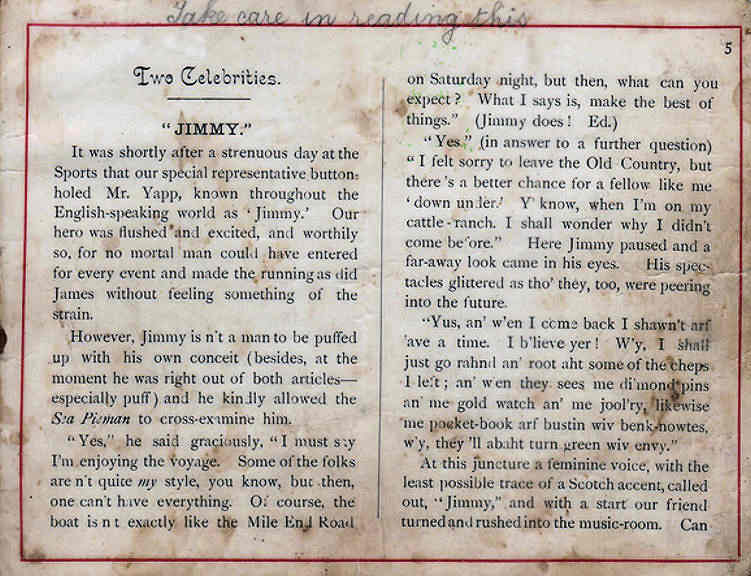 Take care in reading this
5
Two Celebrities.
"JIMMY."
It was shortly after a strenuous day at the
Sports that our special representative button-
holed Mr. Yapp, known throughout the
English-speaking world as 'Jimmy.' Our
hero was flushed and excited, and worthily
so, for no mortal man could have entered
for every event and made the running as did
James without feeling something of the
strain.
However, Jimmy is n't a man to be puffed
up with his own conceit (besides, at the
moment he was right out of both articles—
especially puff) and he kindly allowed the
Sea Pieman to cross-examine him.
"Yes," he said graciously, "I must say
I'm enjoying the voyage. Some of the folks
are n't quite my style, you know, but then,
one can't have everything. Of course, the
boat is n t exactly like the Mile End Road
on Saturday night, but then, what can you
expect? What I says is, make the best of
things." (Jimmy does! Ed.)
"Yes," (in answer to a further question)
"I felt sorry to leave the Old Country, but
there's a better chance for a fellow like me
'down under.' Y' know, when I'm on my
cattle-ranch. I shall wonder why I didn't
come before." Here Jimmy paused and a
far-away look came in his eyes. His spec-
tacles glittered as tho' they, too, were peering
into the future.
"Yus, an' w'en I come back I shawn't arf
'ave a time. I b'lieve yer! W'y, I shall
just go rahnd an' root aht some of the cheps
I left; an' w'en they sees me di'mond pins
an' me gold watch an' me jool'ry, likewise
me pocket-book arf bustin wiv benk-nowtes,
w'y, they 'll abaht turn green wiv envy."
At this juncture a feminine voice, with the
least possible trace of a Scotch accent, called
out, "Jimmy," and with a start our friend
turned and rushed into the music-room. Can